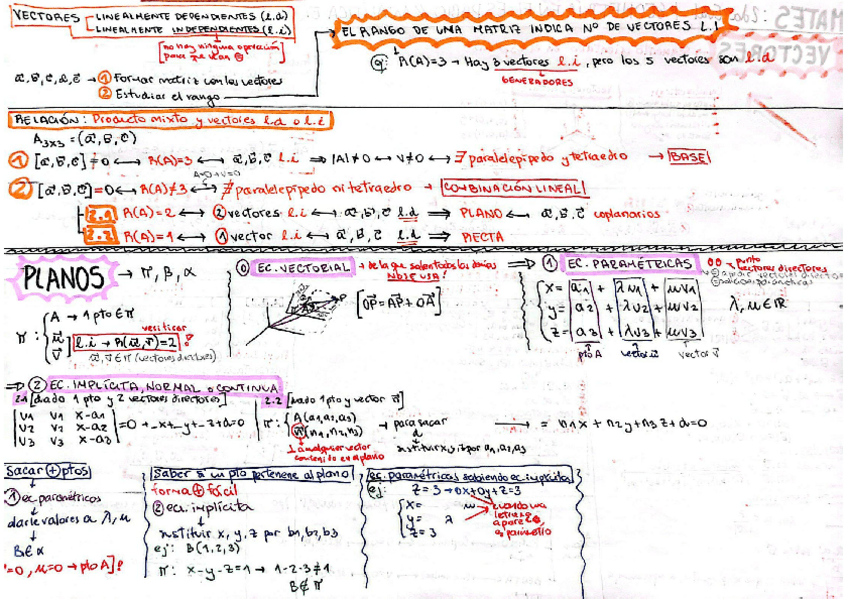 VECTORES
LINEALMENTE DEPENDIENTES (l.d)
LINEALMENTE INDEPENDIENTES (l.i)
no hay ninguna operación
para que dan
EL RANGO DE UNA MATRIZ INDICA Nº DE VECTORES L.I
ej: R(A)=3 → Hay 3 vectores l.i, pero los 5 vectores son l.d
GENERADORES
① Formar matriz con los vectores
② Estudiar el rango
RELACIÓN: Producto mixto y vectores l.d o l.i
A3x3 = (a⃗, b⃗, c⃗)
① [a⃗, b⃗, c⃗] ≠ 0 ↔ R(A)=3 ↔ a⃗, b⃗, c⃗ l.i ⇒ |A| ≠ 0 ↔ V≠0 ↔ ∃ paralelepípedo y tetraedro → BASE
② [a⃗, b⃗, c⃗] = 0 ↔ R(A)≠3 ↔ ∄ paralelepípedo ni tetraedro → COMBINACIÓN LINEAL
2.1 R(A)=2 ↔ ② vectores l.i ↔ a⃗, b⃗, c⃗ l.d ⇒ PLANO ↔ a⃗, b⃗, c⃗ coplanarios
2.2 R(A)=1 ↔ ① vector l.i ↔ a⃗, b⃗, c⃗ l.d ⇒ RECTA
PLANOS → π, β, α
π: A → 1 pto ∈ π
u⃗
v⃗
verificar
l.i → R(u⃗, v⃗)=2
u⃗, v⃗ ∈ π (vectores directores)
⓪ EC. VECTORIAL → de la que salen todas las demás
NO SE USA!
[OP⃗ = AP⃗ + OA⃗]
⇒ ① EC. PARAMÉTRICAS
punto
vectores directores
x = a1 + λu1 + μv1
y = a2 + λu2 + μv2
z = a3 + λu3 + μv3
λ, μ ∈ ℝ
pto A
vector u⃗
vector v⃗
⇒ ② EC. IMPLÍCITA, NORMAL o CONTINUA
2.1 [dado 1 pto y 2 vectores directores]
u1 v1 x-a1
u2 v2 x-a2
u3 v3 x-a3
=0 → _x+_y+_z+d=0
2.2 [dado 1 pto y vector n⃗]
π: A(a1, a2, a3)
n⃗(n1, n2, n3)
⊥ a cualquier vector
contenido en el plano
→ para sacar
d
sustituir x, y, z por a1, a2, a3
→ = n1x + n2y + n3z + d = 0
Sacar ⊕ ptos
① ec. paramétricas
darle valores a λ, μ
B ∈ α
=0, μ=0 → pto A]!
Saber si un pto pertenece al plano
forma ⊕ fácil
② ec. implícita
sustituir x, y, z por b1, b2, b3
ej: B(1,2,3)
π: x-y-z=1 → 1-2-3≠1
B∉π
ec. paramétricas sabiendo ec. implícita
ej: z=3 → 0x+0y+z=3
x= μ
y= λ
z=3
cuando una
letra no
aparece,
es parámetro